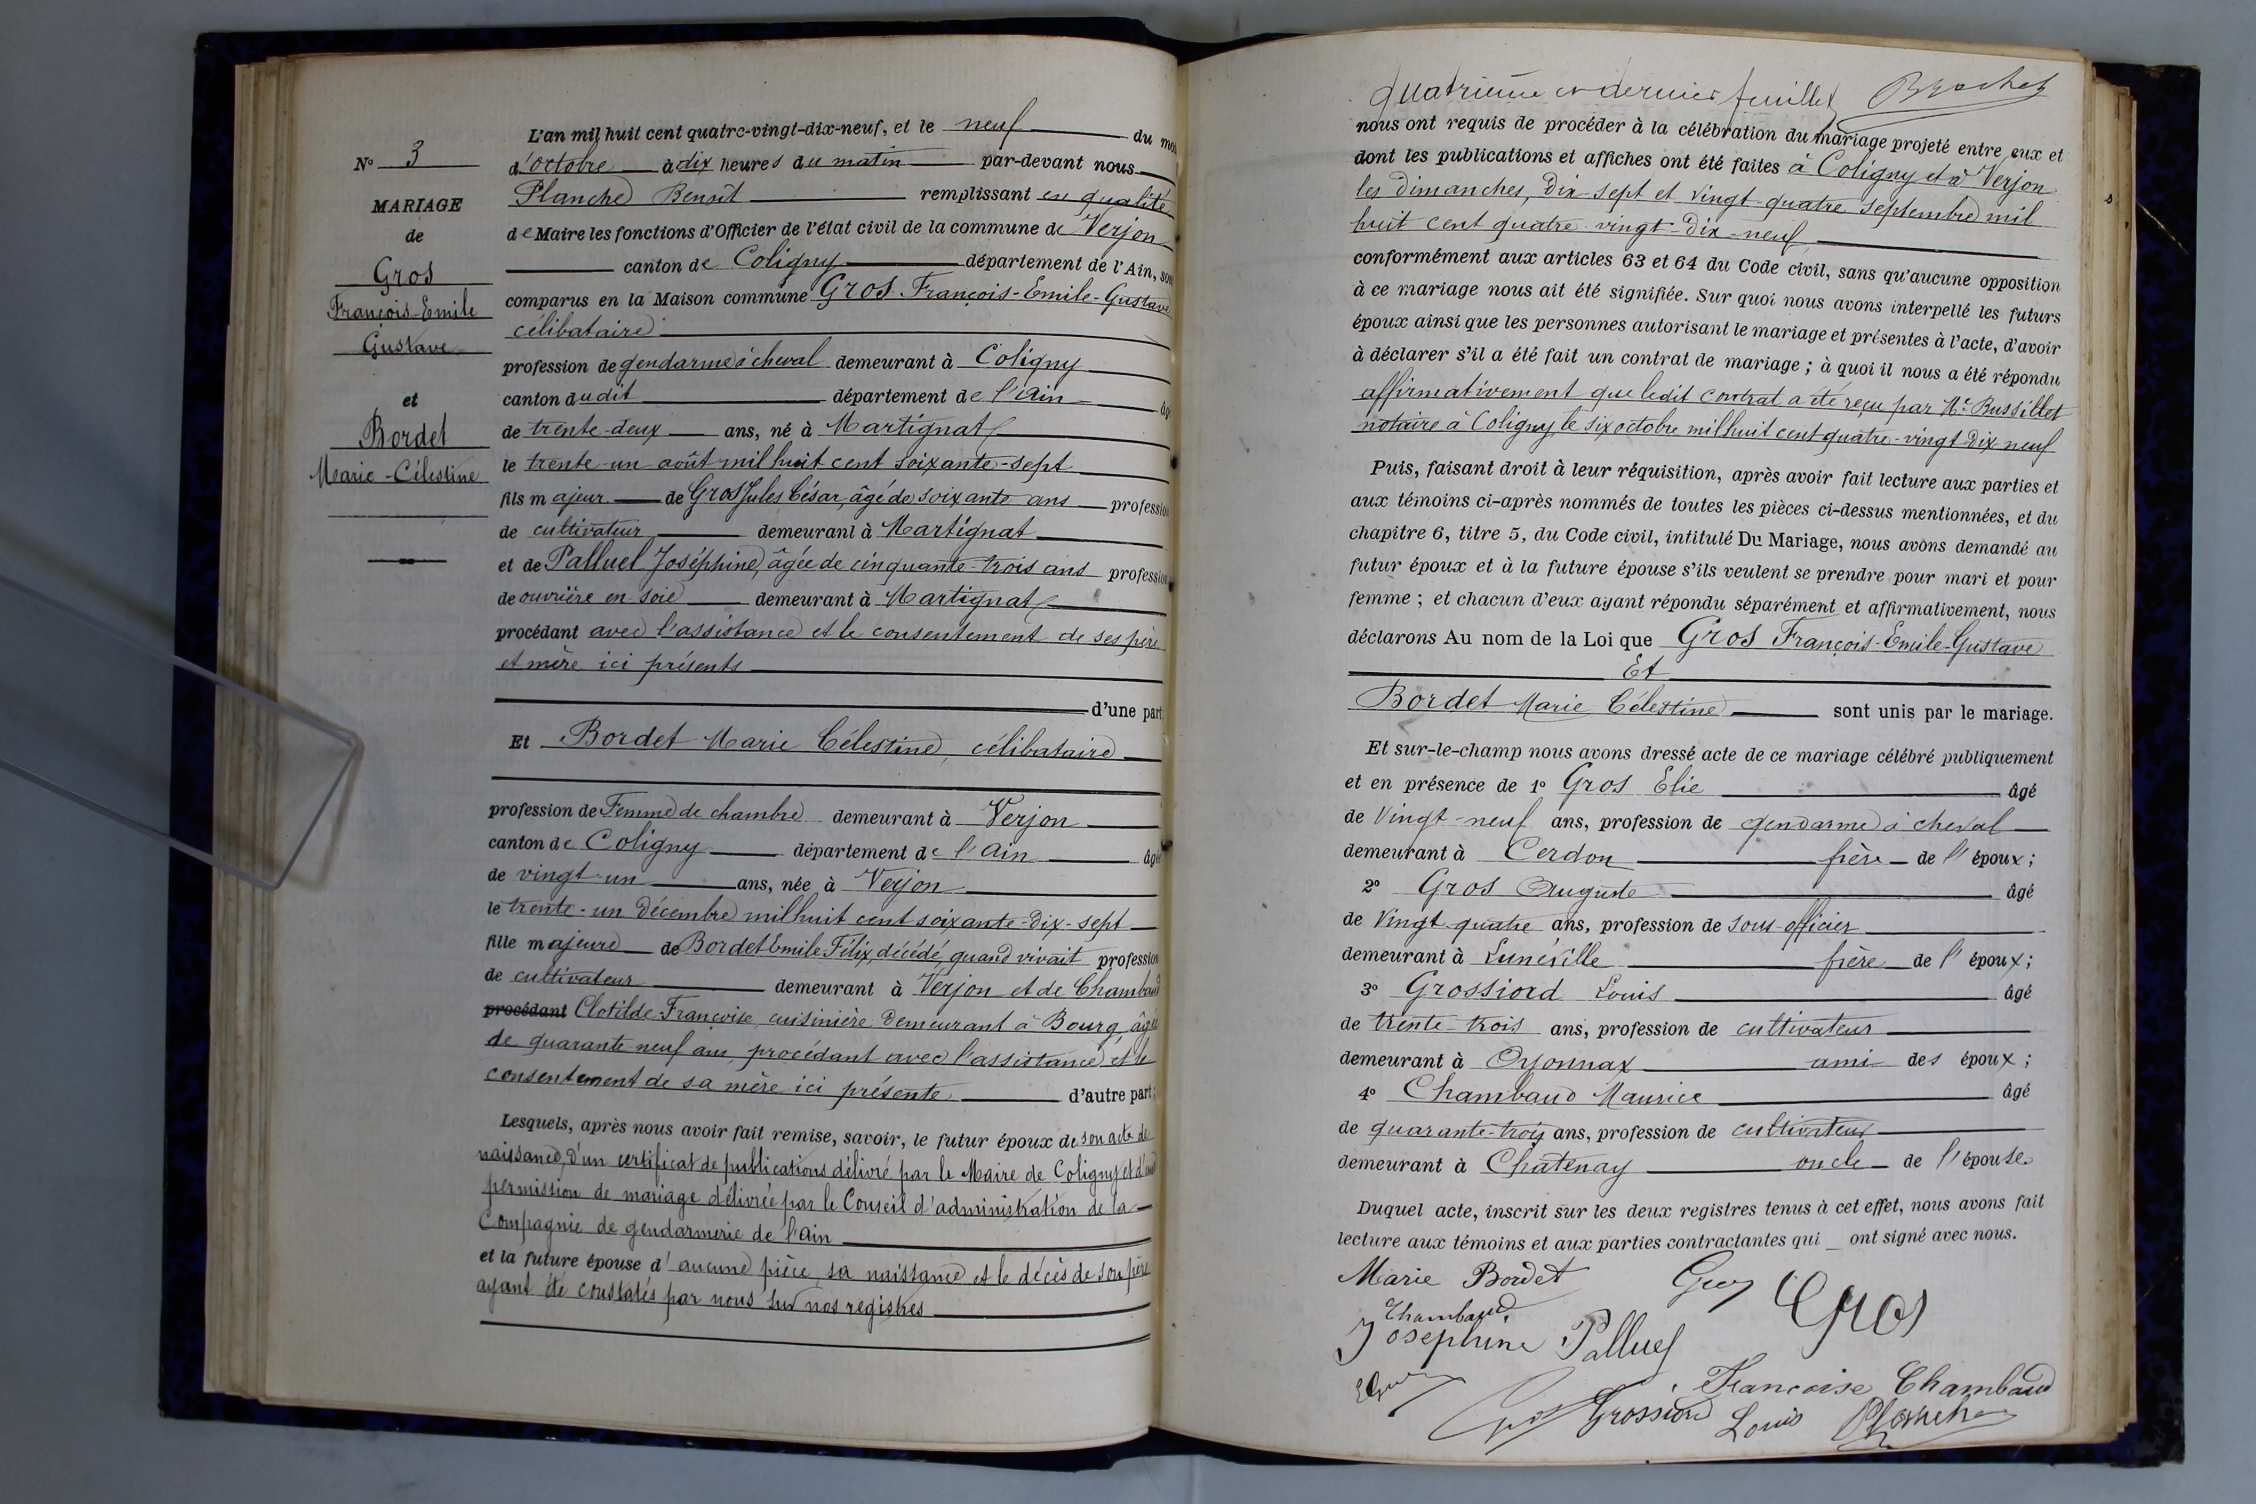 N° 3
MARIAGE
de
Gros
François-Emile
Gustave
et
Bordet
Marie-Célestine
L'an mil huit cent quatre-vingt-dix-neuf, et le neuf du mois
d'octobre à dix heures du matin par-devant nous
Planche Benoît remplissant en qualité
de Maire les fonctions d'Officier de l'état civil de la commune de Verjon
canton de Coligny département de l'Ain, sont
comparus en la Maison commune Gros François-Emile-Gustave
célibataire
profession de gendarme à cheval demeurant à Coligny
canton dudit département de l'Ain âgé
de trente-deux ans, né à Martignat
le trente-un août mil huit cent soixante-sept
fils majeur de Gros Jules César, âgé de soixante ans profession
de cultivateur demeurant à Martignat
et de Palluel Joséphine, âgée de cinquante-trois ans profession
de ouvrière en soie demeurant à Martignat
procédant avec l'assistance et le consentement de ses père
et mère ici présents
d'une part
Et Bordet Marie Célestine, célibataire
profession de Femme de chambre demeurant à Verjon
canton de Coligny département de l'Ain âgée
de vingt-un ans, née à Verjon
le trente-un Décembre mil huit cent soixante-dix-sept
fille majeure de Bordet Emile Félix, décédé, quand vivait profession
de cultivateur demeurant à Verjon et de Chambaud
procédant Clotilde-Françoise, cuisinière demeurant à Bourg, âgée
de quarante neuf ans, procédant avec l'assistance et le
consentement de sa mère ici présente d'autre part;
Lesquels, après nous avoir fait remise, savoir, le futur époux de son acte de
naissance, d'un certificat de publications délivré par le Maire de Coligny et d'une
permission de mariage délivrée par le Conseil d'administration de la
Compagnie de gendarmerie de l'Ain
et la future épouse d'aucune pièce, sa naissance et le décès de son père
ayant été constatés par nous sur nos registres
quatrième et dernier feuillet Brochet
nous ont requis de procéder à la célébration du mariage projeté entre eux et
dont les publications et affiches ont été faites à Coligny et à Verjon
les dimanches, Dix-sept et vingt-quatre septembre mil
huit cent quatre-vingt-Dix-neuf
conformément aux articles 63 et 64 du Code civil, sans qu'aucune opposition
à ce mariage nous ait été signifiée. Sur quoi nous avons interpellé les futurs
époux ainsi que les personnes autorisant le mariage et présentes à l'acte, d'avoir
à déclarer s'il a été fait un contrat de mariage; à quoi il nous a été répondu
affirmativement que ledit contrat a été reçu par Me Bussillet
notaire à Coligny, le six octobre mil huit cent quatre-vingt Dix neuf
Puis, faisant droit à leur réquisition, après avoir fait lecture aux parties et
aux témoins ci-après nommés de toutes les pièces ci-dessus mentionnées, et du
chapitre 6, titre 5, du Code civil, intitulé Du Mariage, nous avons demandé au
futur époux et à la future épouse s'ils veulent se prendre pour mari et pour
femme; et chacun d'eux ayant répondu séparément et affirmativement, nous
déclarons Au nom de la Loi que Gros François-Emile-Gustave
Et
Bordet Marie Célestine sont unis par le mariage.
Et sur-le-champ nous avons dressé acte de ce mariage célébré publiquement
et en présence de 1° Gros Elie âgé
de Vingt-neuf ans, profession de gendarme à cheval
demeurant à Cerdon frère de l'époux;
2° Gros Auguste âgé
de Vingt-quatre ans, profession de sous-officier
demeurant à Lunéville frère de l'époux;
3° Grossiord Louis âgé
de trente-trois ans, profession de cultivateur
demeurant à Oyonnax ami des époux;
4° Chambaud Maurice âgé
de quarante-trois ans, profession de cultivateur
demeurant à Chatenay oncle de l'épouse.
Duquel acte, inscrit sur les deux registres tenus à cet effet, nous avons fait
lecture aux témoins et aux parties contractantes qui ont signé avec nous.
Marie Bordet Gros Gros
Chambaud
Josephine Palluel
Françoise Chambaud
Gros Grossiord Louis Planche